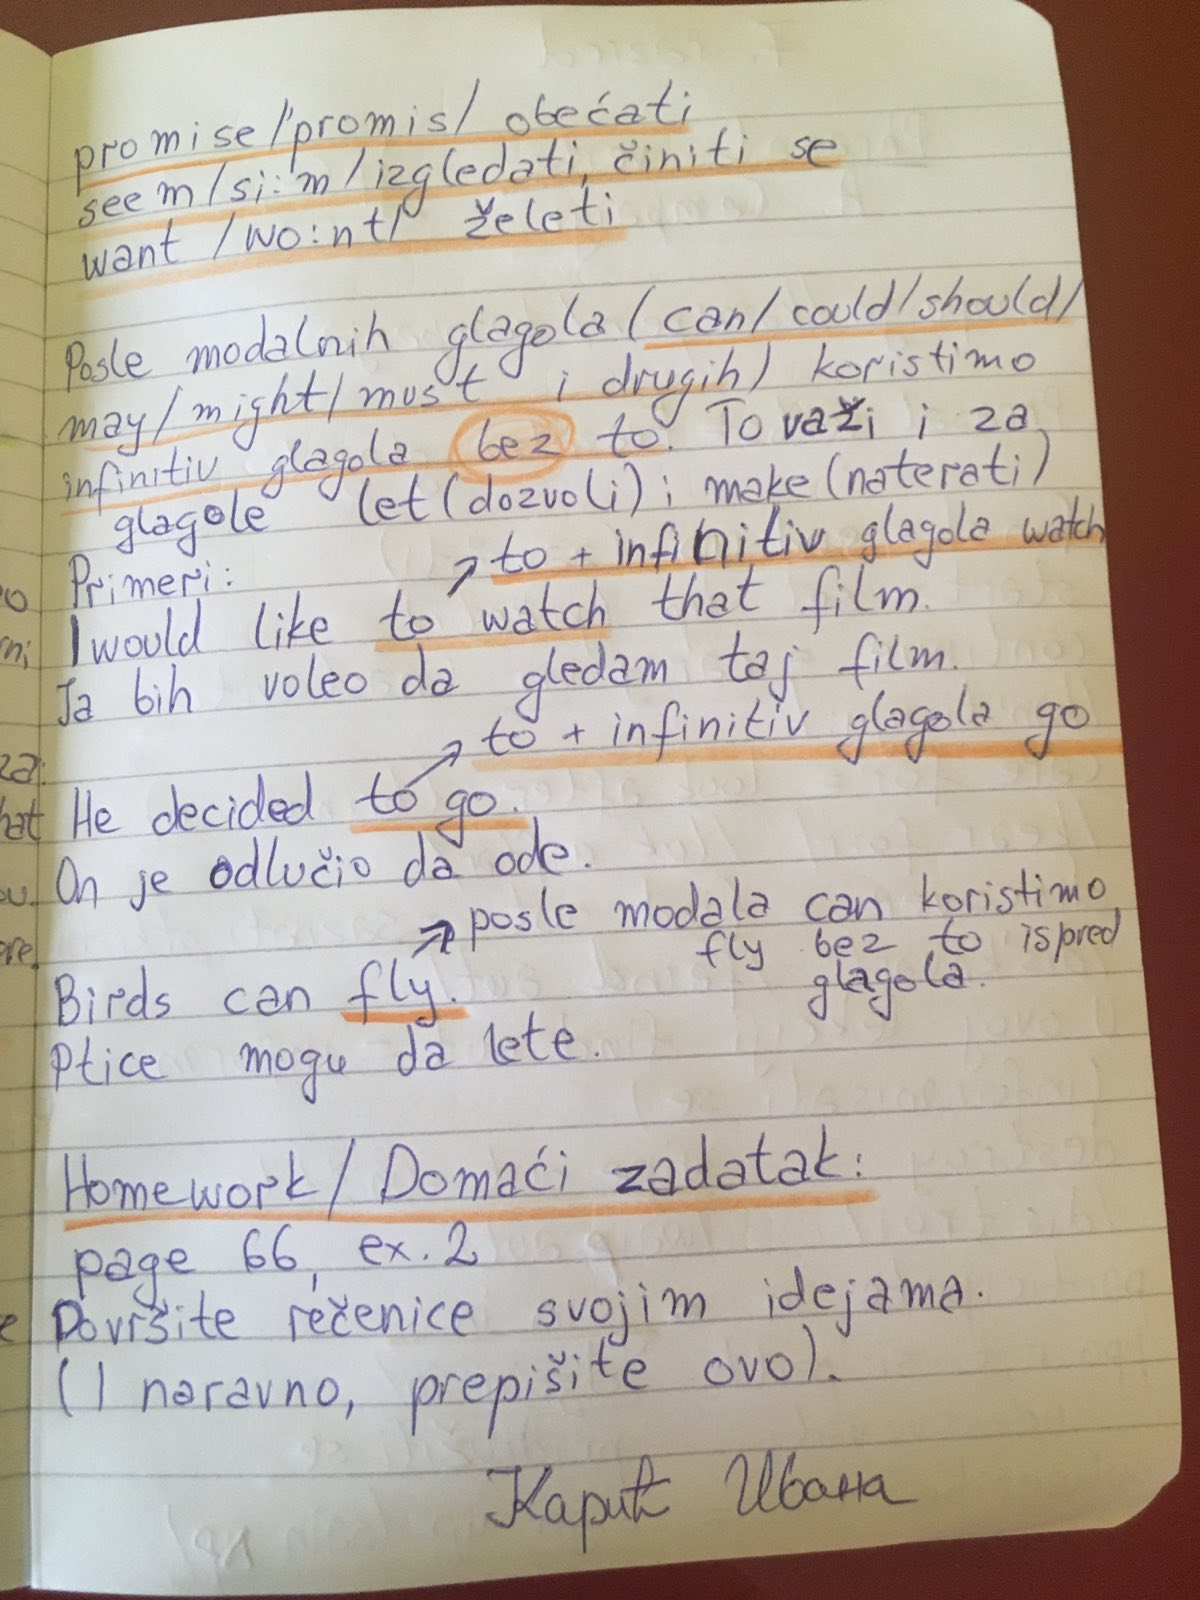 promise /promis/ obećati
seem /si:m/ izgledati, činiti se
want /wo:nt/ želeti
Posle modalnih glagola (can/could/should/
may/might/must i drugih) koristimo
infinitiv glagola bez to. To važi i za
glagole let (dozvoli) i make (naterati)
Primeri: ↗ to + infinitiv glagola watch
I would like to watch that film.
Ja bih voleo da gledam taj film.
↗ to + infinitiv glagola go
He decided to go.
On je odlučio da ode.
↗ posle modala can koristimo
fly bez to ispred
glagola.
Birds can fly.
Ptice mogu da lete.
Homework / Domaći zadatak:
page 66, ex. 2
Dovršite rečenice svojim idejama.
(I naravno, prepišite ovo).
Карић Ивана